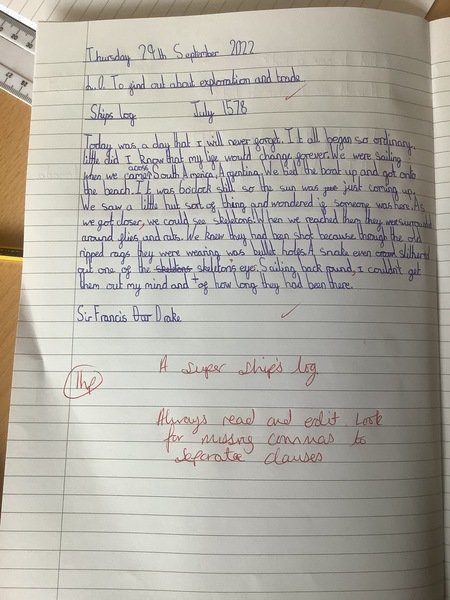 Thursday 29th September 2022
L.O. To find out about exploration and trade
Ships log July 1578
Today was a day that I will never forget. It all began so ordinary.
little did I know that my life would change forever. We were sailing
when we came across South America, Argentina. We tied the boat up and got onto
the beach. It was 6 o'clock still so the sun was just coming up.
We saw a little hut sort of thing and wondered if someone was here. As
we got closer, we could see skeletons. When we reached them they were surrounded
around flies and rats. We knew they had been shot because through the old
ripped rags they were wearing was bullet holes. A snake even slithered
out one of the skeletons eyes. Sailing back round, I couldn't get
them out my mind and of how long they had been there.
Sir Francis Drake
1hp
A super ship's log
Always read and edit look
for missing commas to
separate clauses